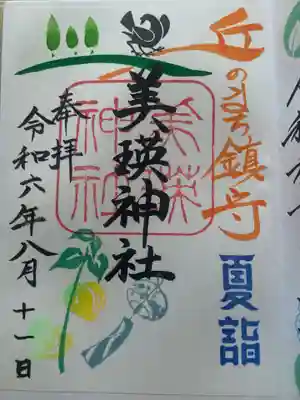 丘のまち鎮守
夏詣
美瑛神社
美瑛
神社
奉拝
令和六年八月十一日